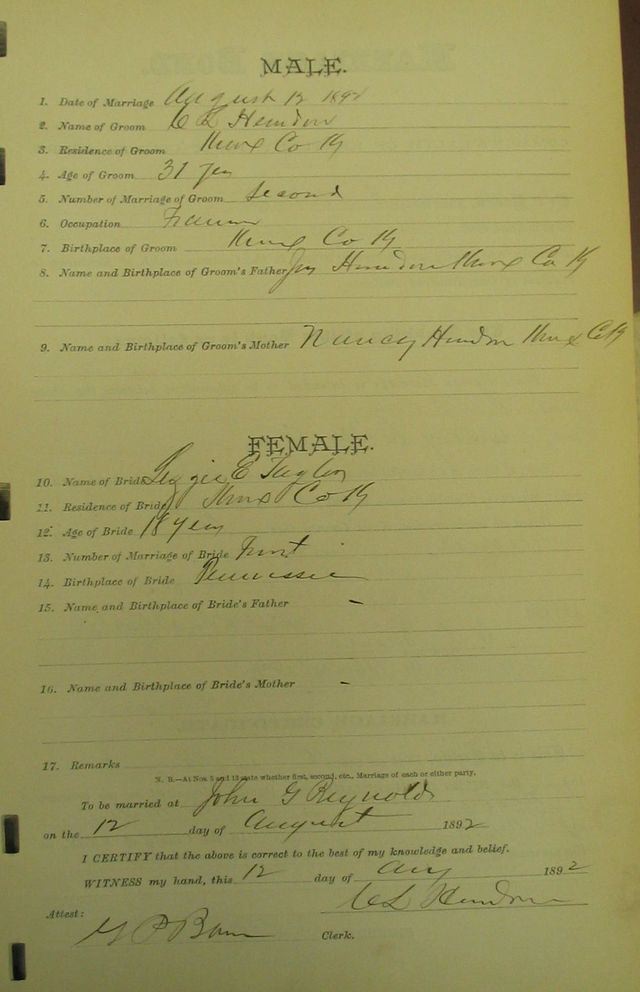 MALE.
1. Date of Marriage August 12 1892
2. Name of Groom C L Herndon
3. Residence of Groom Knox Co Ky
4. Age of Groom 31 yrs
5. Number of Marriage of Groom Second
6. Occupation Farmer
7. Birthplace of Groom Knox Co Ky
8. Name and Birthplace of Groom's Father Herndon Knox Co Ky
9. Name and Birthplace of Groom's Mother Nancy Herndon Knox Co Ky
FEMALE.
10. Name of Bride E Taylor
11. Residence of Bride Knox Co Ky
12. Age of Bride 18 years
13. Number of Marriage of Bride First
14. Birthplace of Bride Tennessee
15. Name and Birthplace of Bride's Father –
16. Name and Birthplace of Bride's Mother –
17. Remarks
N. B.—At Nos. 5 and 13 state whether first, second, etc., Marriage of each or either party.
To be married at John G Reynolds
on the 12 day of August 1892
I CERTIFY that the above is correct to the best of my knowledge and belief.
WITNESS my hand, this 12 day of Aug 1892
C L Herndon
Attest:
Clerk.